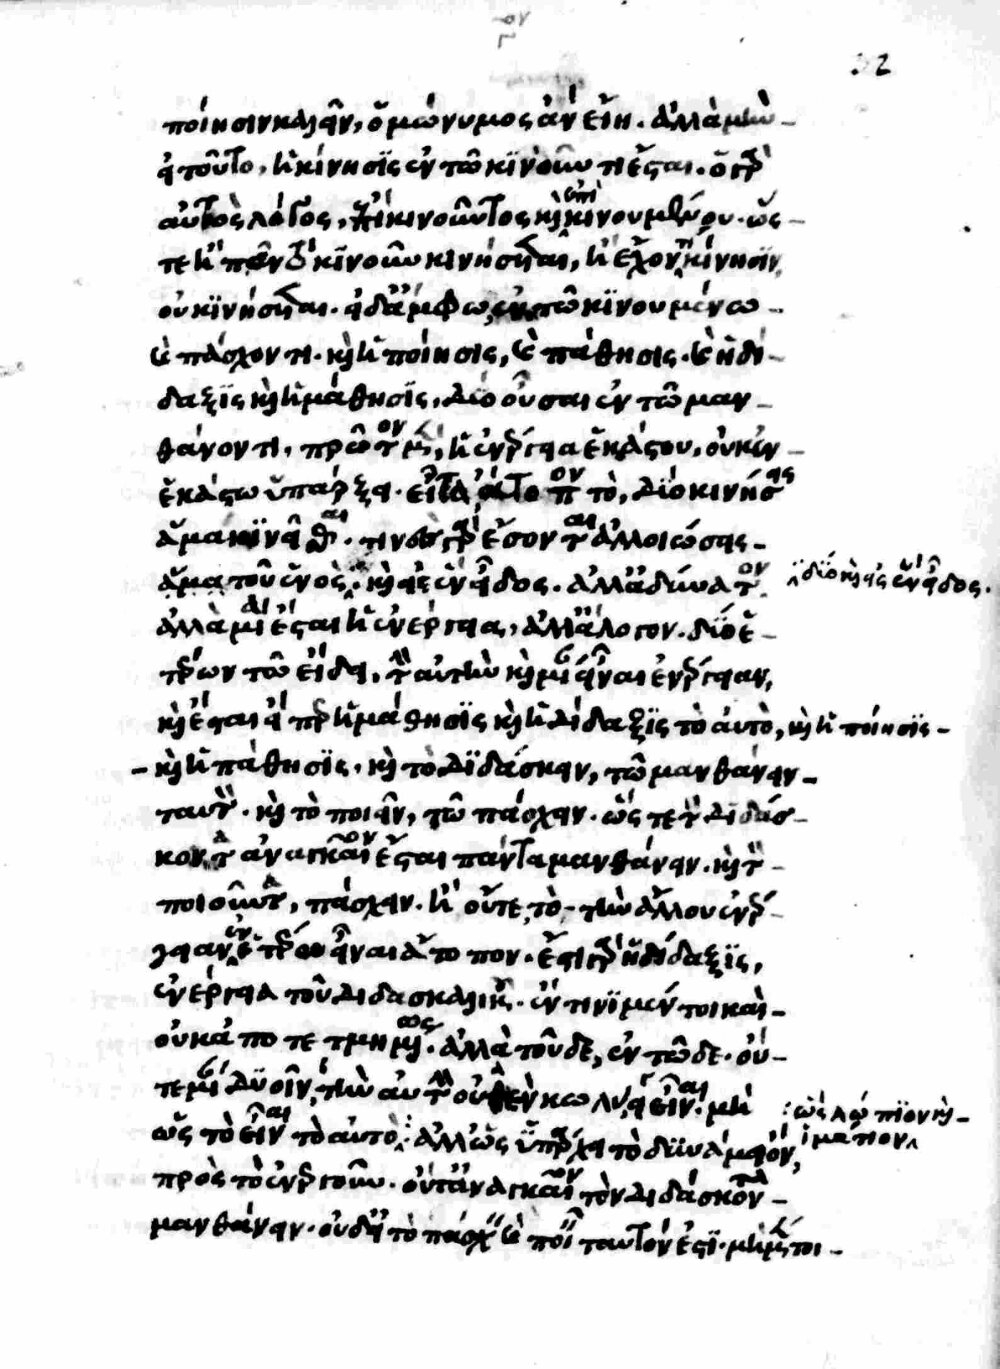 ον
22
ποίησιν καλεῖν, ὁμώνυμος ἂν εἴη. ἀλλὰ μὴν
εἰ τοῦτο, ἡ κίνησις ἐν τῷ κινουμένῳ τι ἔσται. ὁ γὰρ
αὐτὸς λόγος, ἐπὶ κινοῦντος καὶ ἐπὶ κινουμένου. ὥσ-
τε ἢ πᾶν τὸ κινοῦν κινήσεται, ἢ ἔχον τι κίνησιν
οὐ κινήσεται. εἰ δ' ἄμφω ἐν τῷ κινουμένῳ
καὶ πάσχοντι. καὶ ἡ ποίησις, καὶ ἡ πάθησις. καὶ ἡ δί-
δαξις καὶ ἡ μάθησις, δύο οὖσαι ἐν τῷ μαν-
θάνοντι, πρῶτον μὲν, ἡ ἐνέργεια ἑκάστου, οὐκ ἐν
ἑκάστῳ ὑπάρξει. εἶτα ἄτοπον τὸ, δύο κινήσεις
ἅμα κινεῖσθαι. τινὲς γὰρ ἔσονται ἀλλοιώσεις
ἅμα τοῦ ἑνὸς καὶ εἰς ἓν εἶδος. ἀλλ' ἀδύνατον
δύο καὶ εἰς ἓν εἶδος.
ἀλλὰ μία ἔσται ἡ ἐνέργεια, ἀλλ' ἄλογον. δύο ἑ-
τέρων τῷ εἴδει, τὴν αὐτὴν καὶ μίαν εἶναι ἐνέργειαν,
καὶ ἔσται εἴπερ ἡ μάθησις καὶ ἡ δίδαξις τὸ αὐτὸ, καὶ ἡ ποίησις
καὶ ἡ πάθησις. καὶ τὸ διδάσκειν, τῷ μανθάνειν
ταυτὸ. καὶ τὸ ποιεῖν, τῷ πάσχειν. ὥστε τὸν διδάσ-
κοντα ἀναγκαῖον ἔσται πάντα μανθάνειν. καὶ τὸν
ποιοῦντα, πάσχειν. ἢ οὔτε τὸ τὴν ἄλλου ἐνέρ-
γειαν ἐν ἑτέρῳ εἶναι ἄτοπον. ἔστι γὰρ ἡ δίδαξις,
ἐνέργεια τοῦ διδασκαλικοῦ. ἔν τινι μέντοι καὶ
οὐκ ἀποτετμημένως. ἀλλὰ τοῦδε, ἐν τῷδε. οὔ-
τε μίαν δυοῖν, τὴν αὐτὴν οὐθὲν κωλύει εἶναι. μὴ
ὡς λώπιον καὶ
ἱμάτιον
ὡς τὸ εἶναι τὸ αὐτὸ. ἀλλ' ὡς ὑπάρχει τὸ δυνάμει ὂν,
πρὸς τὸ ἐνεργοῦν. οὔτ' ἀναγκαῖον τὸν διδάσκοντα
μανθάνειν. οὐδ' εἰ τὸ πάσχειν καὶ ποιεῖν ταυτόν ἐστι. μὴ μέντοι